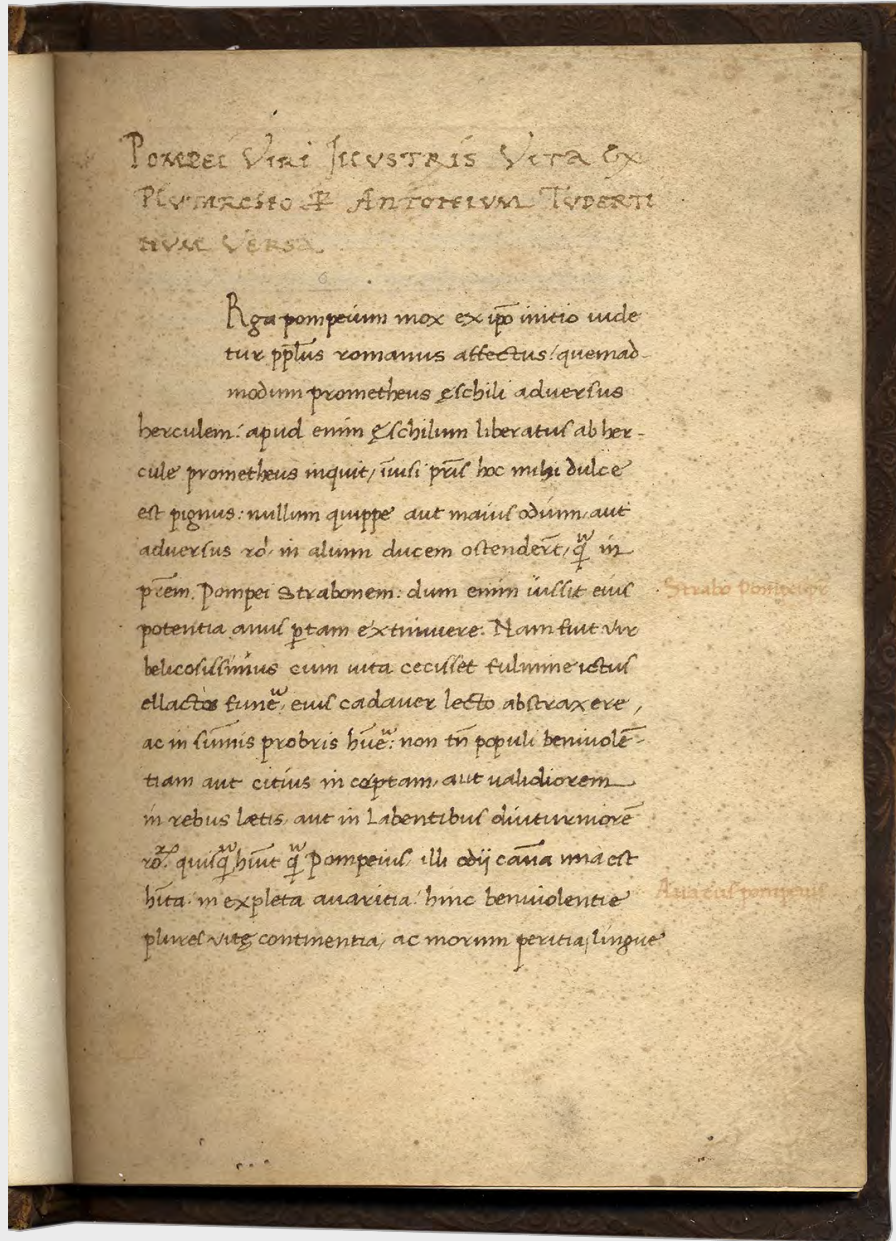 Pompei Viri Illustris Vita Ex
Plutarcho P Antonium Tuderti
num Versa
Rga pompeium mox ex ip̄o initio uide
tur pp̄lus romanus affectus: quemad-
modum prometheus ęschili aduersus
herculem: apud enim Ęschilum liberatus ab her-
cule prometheus inquit, īuisi pr̄is hoc mihi dulce
est pignus: nullum quippe aut maius odium, aut
aduersus ro. in alium ducem ostender̄t, q̄ in
pr̄em. Pompei Strabonem: dum enim iussit eius
potentia Nam fuit vir
belicosissimus cum uita cecisset fulmine ictus
ellacto eius cadauer lecto abstraxere,
ac in sum̄is probris non tn̄ populi beniuolē-
tiam aut citius in coeptam, aut ualidiorem
in rebus lætis, aut in Labentibus diuturniorē
ro. Pompeius, illi odij cāua una est
hīta, in expleta auaritia: hinc beniuolentie
plures vitę continentia, ac morum peritia, lingue
Strabo Pompei pr
Auarus pompeius